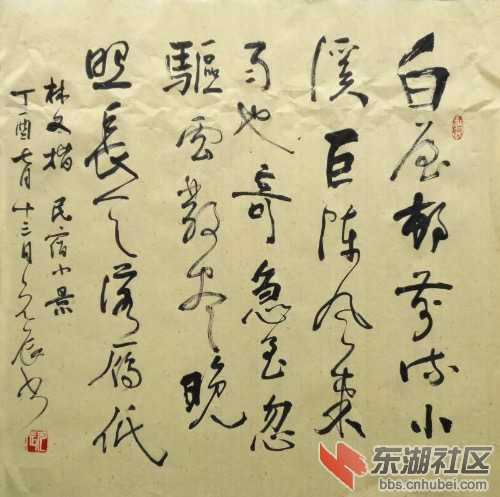 白屋邨前流小
溪巨陈风来
雨也奇急至忽
驅云散尽晚
照長天落雁低
林文楷 民宿小景
丁酉七月十三日
东湖社区
bbs.cnhubei.com